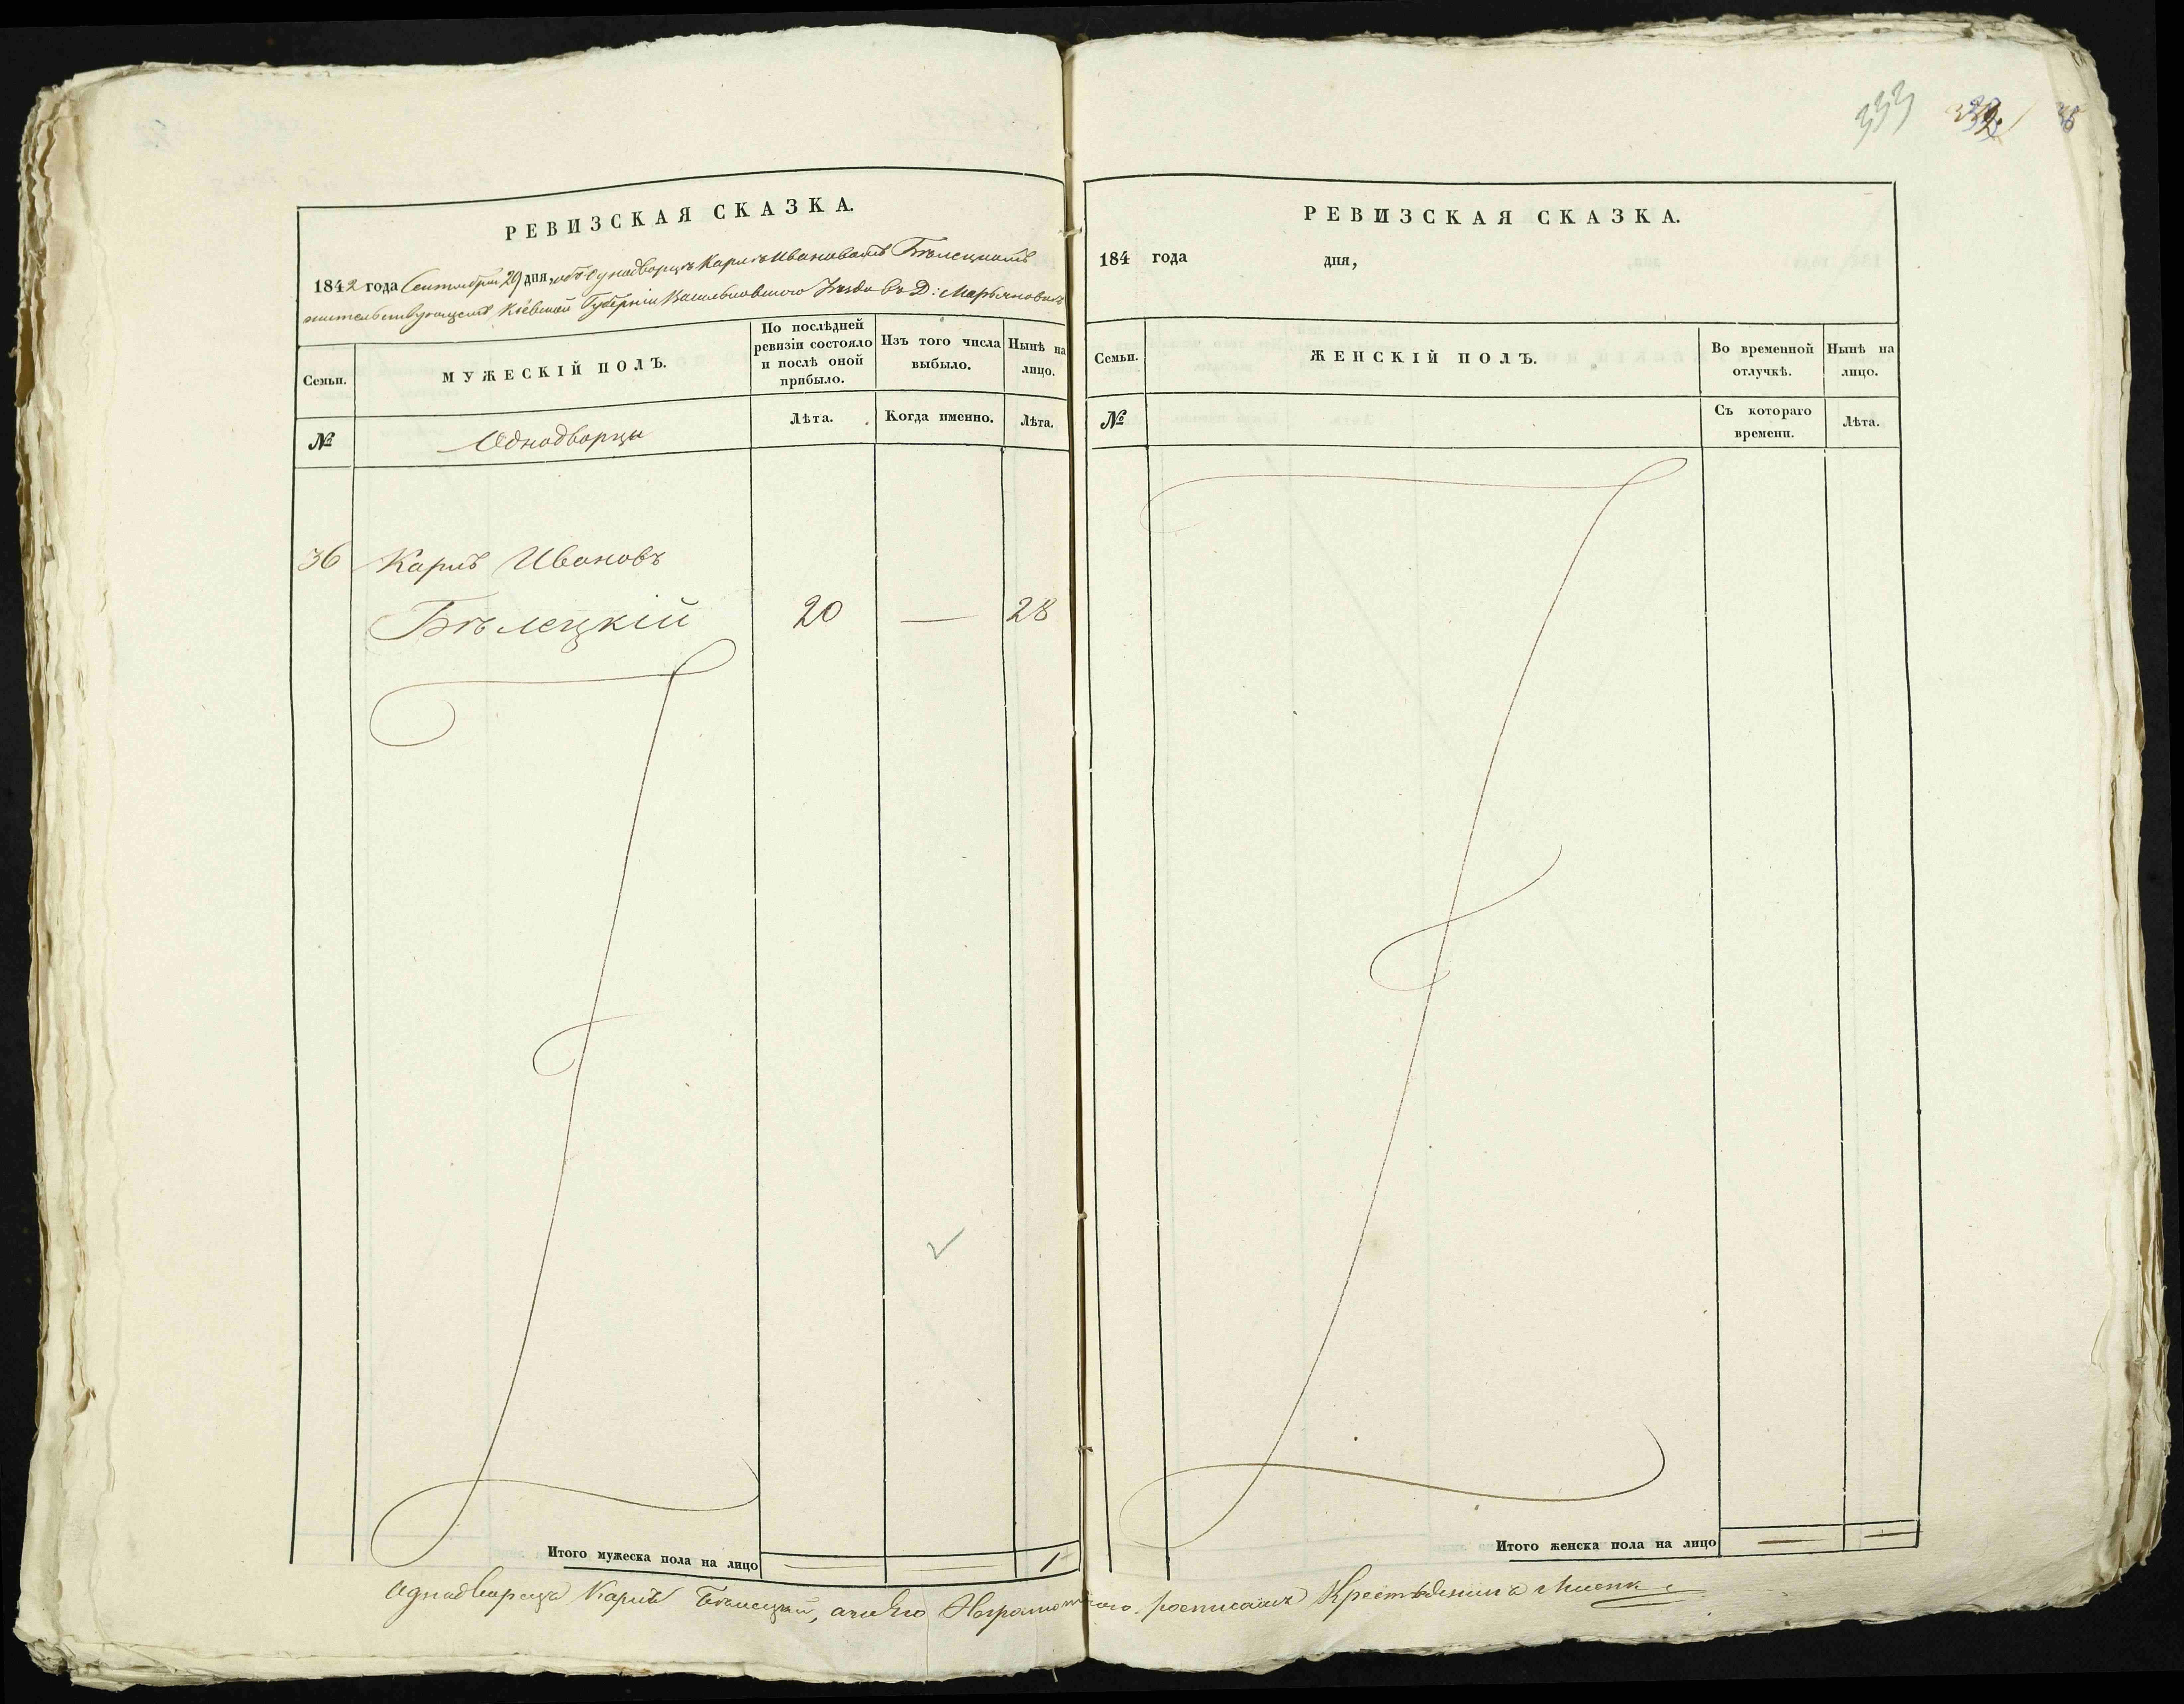 333 332 36
РЕВИЗСКАЯ СКАЗКА.
1842 года Сентября 29 дня, объ однодворцѣ Карлѣ Ивановомъ Бѣлецкомъ
жительствующемъ Кіевской Губерніи Васильковскаго Уезда въ Д: Марьяновкѣ
Семьи.
МУЖЕСКІЙ ПОЛЪ.
По послѣдней ревизіи состояло и послѣ оной прибыло.
Изъ того числа выбыло.
Нынѣ на лицо.
№
Однодворцы
Лѣта.
Когда именно.
Лѣта.
36 Карлъ Ивановъ
Бѣлецкій 20 — 28
Итого мужеска пола на лицо — — 1
РЕВИЗСКАЯ СКАЗКА.
184 года дня,
Семьи.
ЖЕНСКІЙ ПОЛЪ.
Во временной отлучкѣ.
Нынѣ на лицо.
№
Съ котораго времени.
Лѣта.
Итого женска пола на лицо — —
Аднадворецъ Карлъ Бѣлецкій, а за Его Неграмотного росписалъ